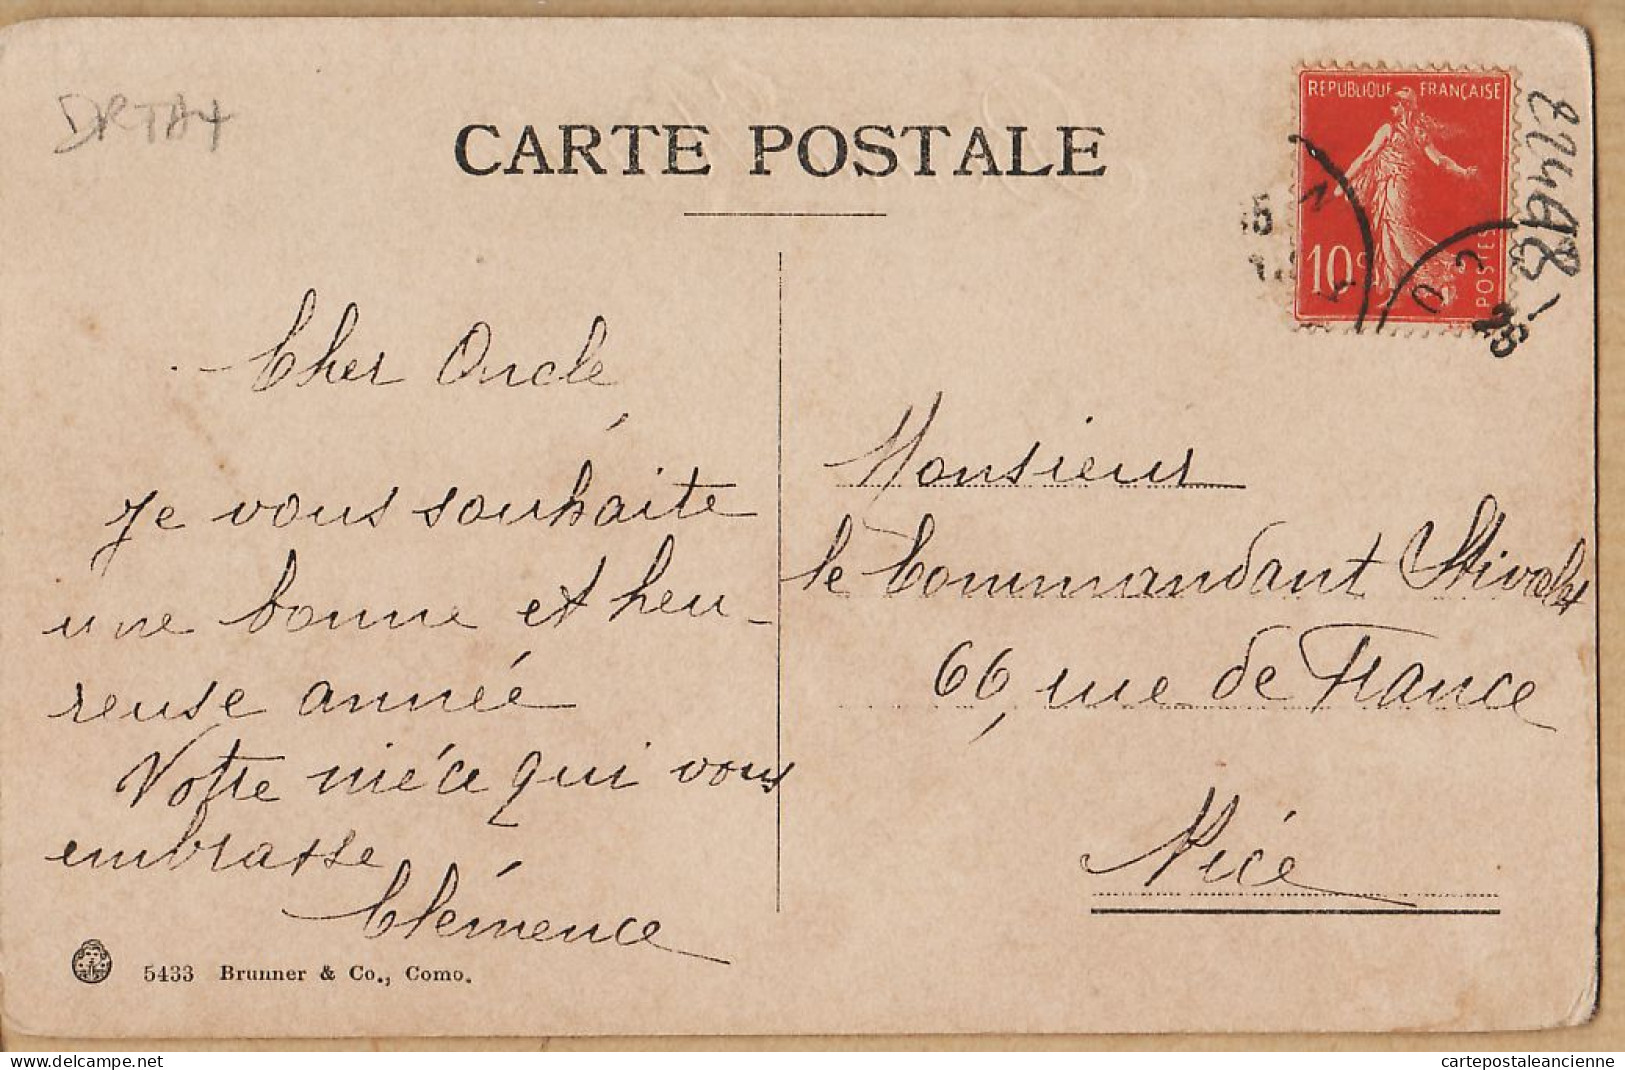 DRTA4
CARTE POSTALE
REPUBLIQUE FRANÇAISE
10c
POSTES
Cher Oncle,
Je vous souhaite
une bonne et heu-
reuse année
Votre nièce qui vous
embrasse
Clémence
Monsieur
le Commandant
66, rue de France
Nice
5433 Brunner & Co., Como.
delcampe.net
cartepostaleancienne